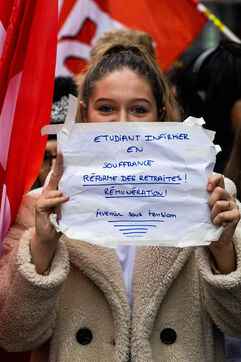 ETUDIANT INFIRMIER
EN
SOUFFRANCE
RÉFORME DES RETRAITES !
RÉMUNÉRATION !
Avenir sous tension